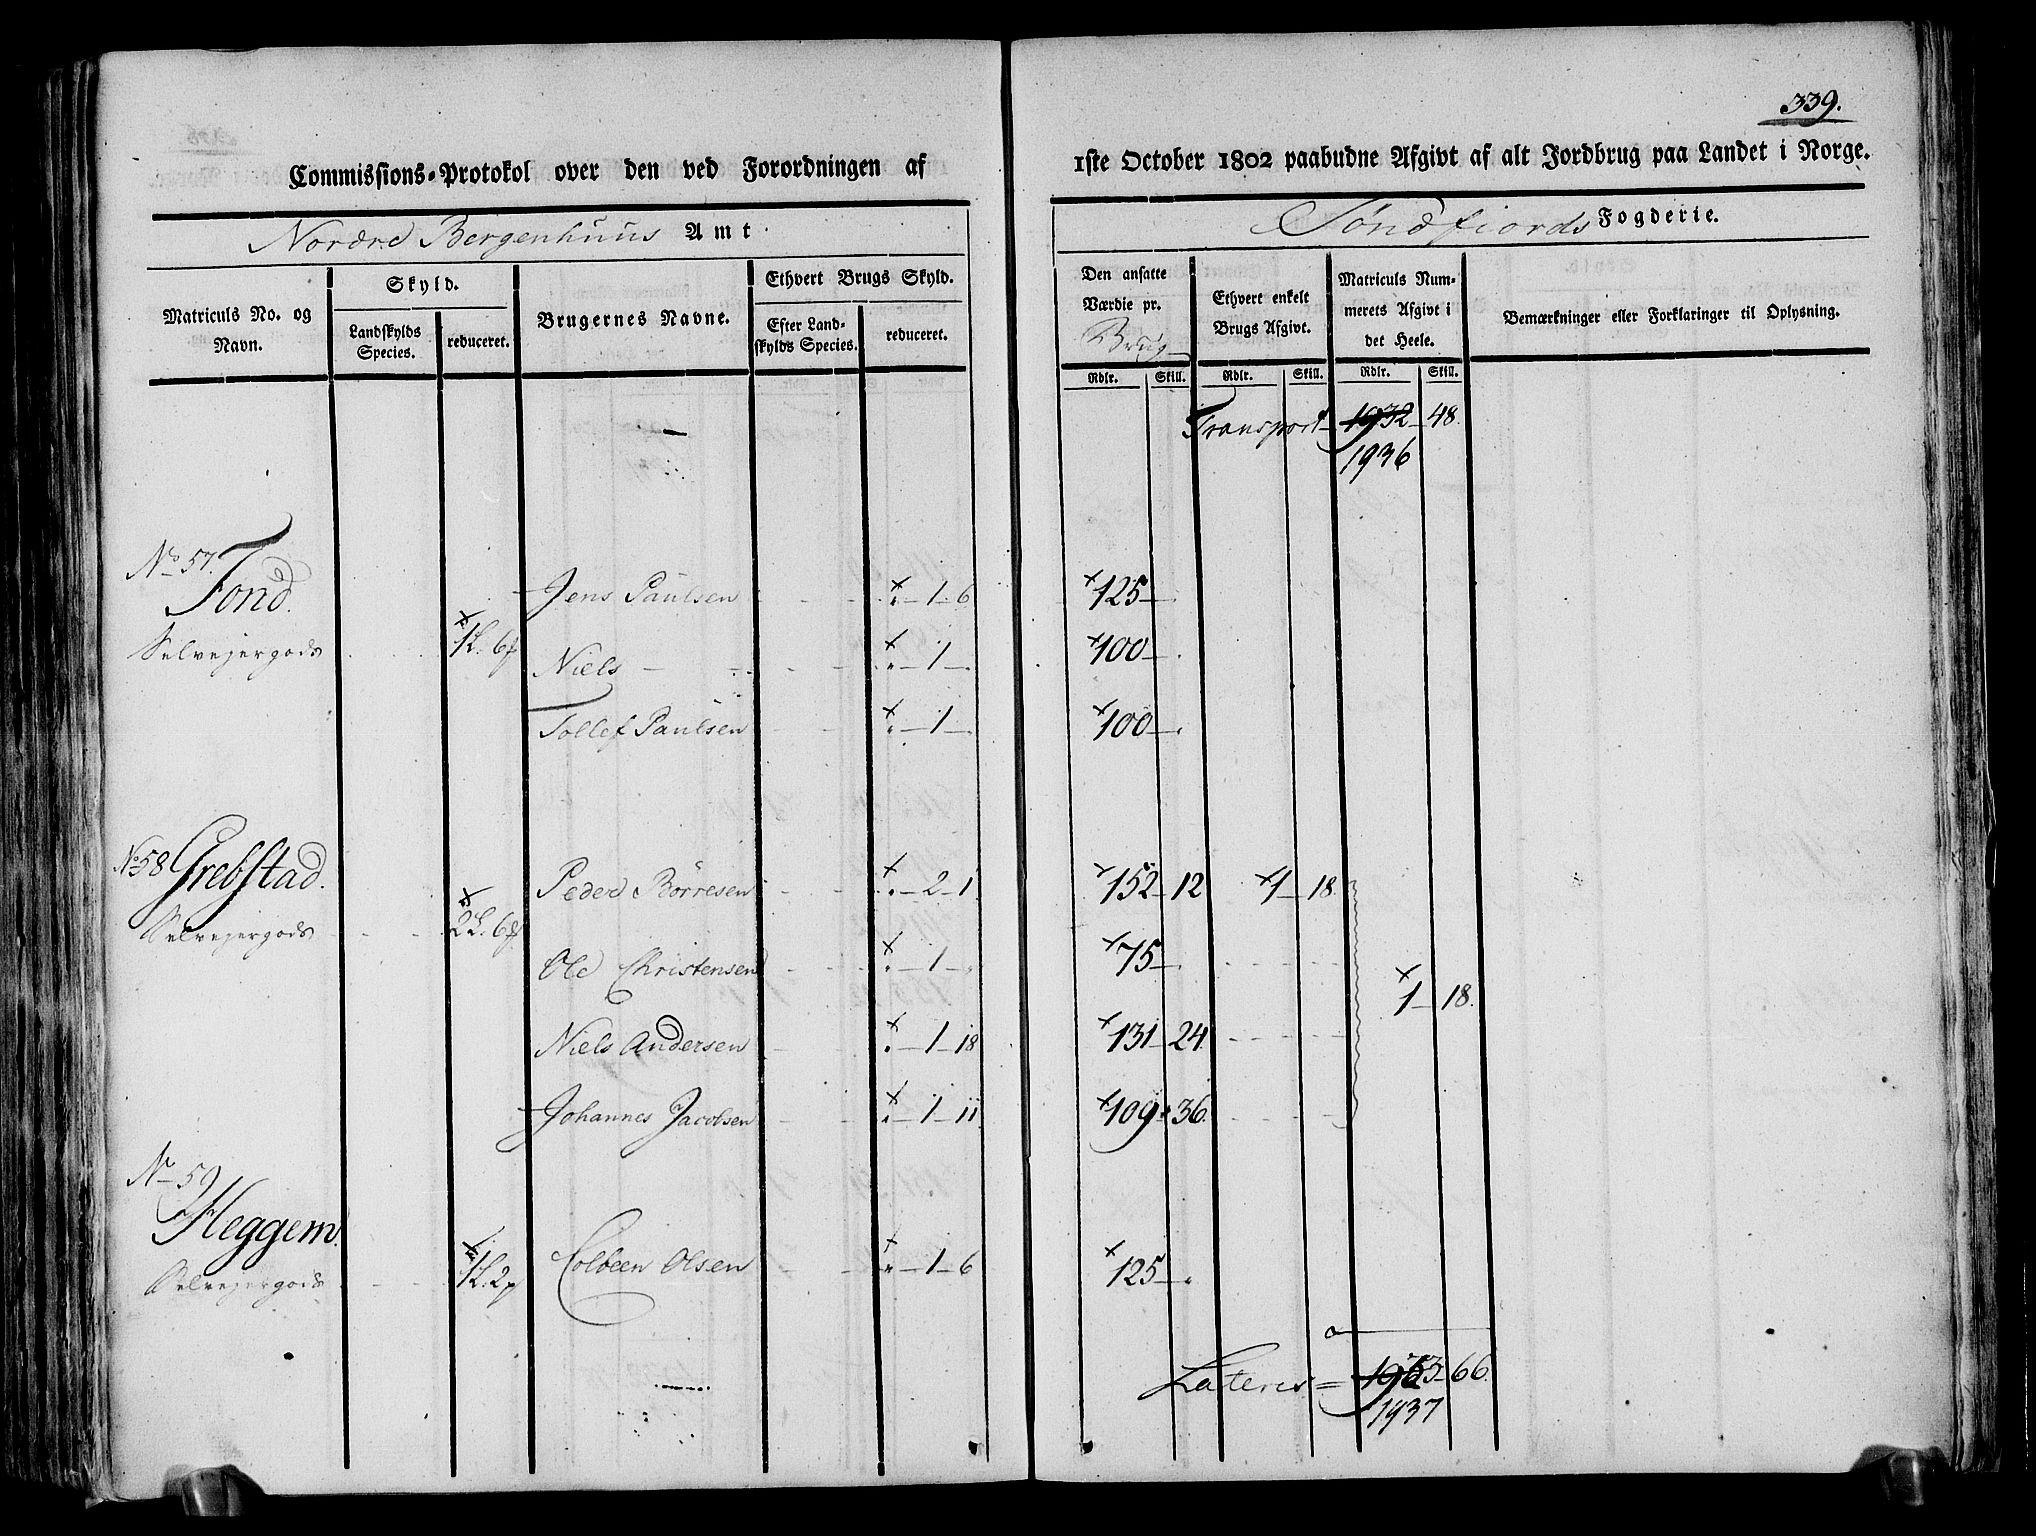 339.
Commissions-Protokol over den ved Forordningen af 1ste October 1802 paabudne Afgivt af alt Jordbrug paa Landet i Norge.
Nordre Bergenhuus Amt
Søndfiords Fogderie.
Matriculs No. og Navn.
Skyld.
Landskylds Species.
reduceret.
Brugernes Navne.
Ethvert Brugs Skyld.
Efter Landskylds Species.
reduceret.
Den ansatte Værdie pr. Brug
Rdlr. Skill.
Ethvert enkelt Brugs Afgivt.
Rdlr. Skill.
Matriculs Nummerets Afgivt i det Heele.
Rdlr. Skill.
Bemærkninger eller Forklaringer til Oplysning.
Transport 1932 - 48.
1936
No 57. Tond.
Jens Paulsen " - 1 - 6 125 -
Selvejergods 1 L. 6
Niels - " - 1 - 100 -
Tollef Paulsen " - 1 - 100 -
No 58 Grebstad.
Peder Börresen " - 2 - 1 152 - 12 1 - 18
Selvejergods 2 L. 6
Ole Christensen " - 1 - 75 -
1 - 18.
Niels Andersen " - 1 - 18 131 - 24
Johannes Jacobsen " - 1 - 11 109 - 36.
No 59
Heggem.
Colbeen Olsen " - 1 - 6 125 -
Selvejergods 1 L. 2
Lateris = 66.
1937